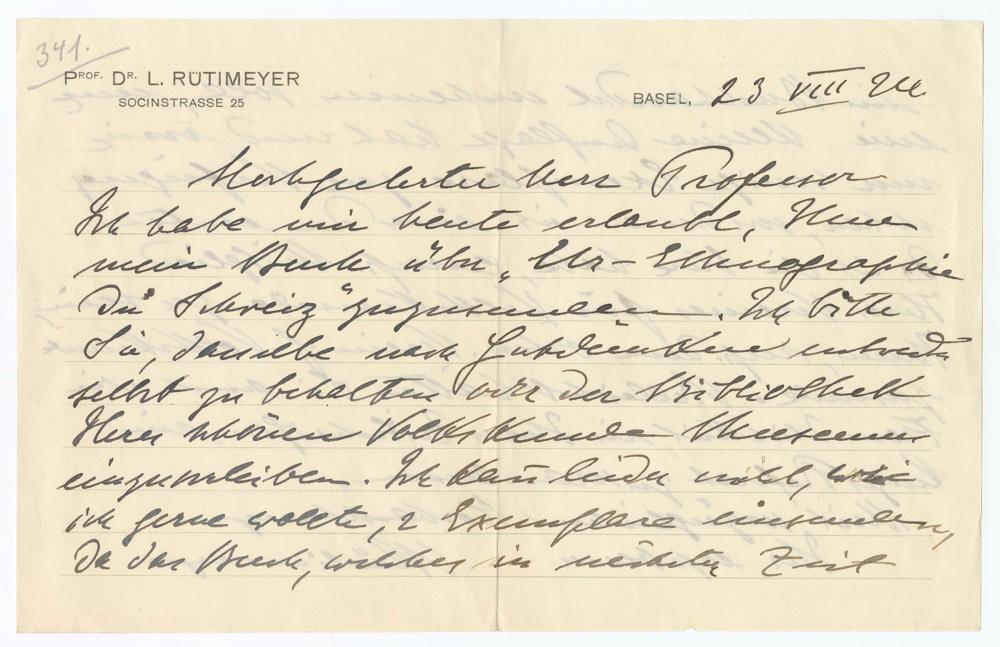 341.
PROF. DR. L. RÜTIMEYER
SOCINSTRASSE 25
BASEL, 23 VIII 24
Hochgeehrter Herr Professor
Ich habe mir heute erlaubt, Ihnen
mein Buch über „Ur-Ethnographie
der Schweiz" zuzusenden. Ich bitte
Sie, dasselbe nach Gutdünken entweder
selbst zu behalten oder der Bibliothek
Ihres schönen Volkskunde Museums
einzuverleiben. Ich kann leider nicht, wie
ich gerne wollte, 2 Exemplare einsenden,
da das Buch, welches in nächster Zeit